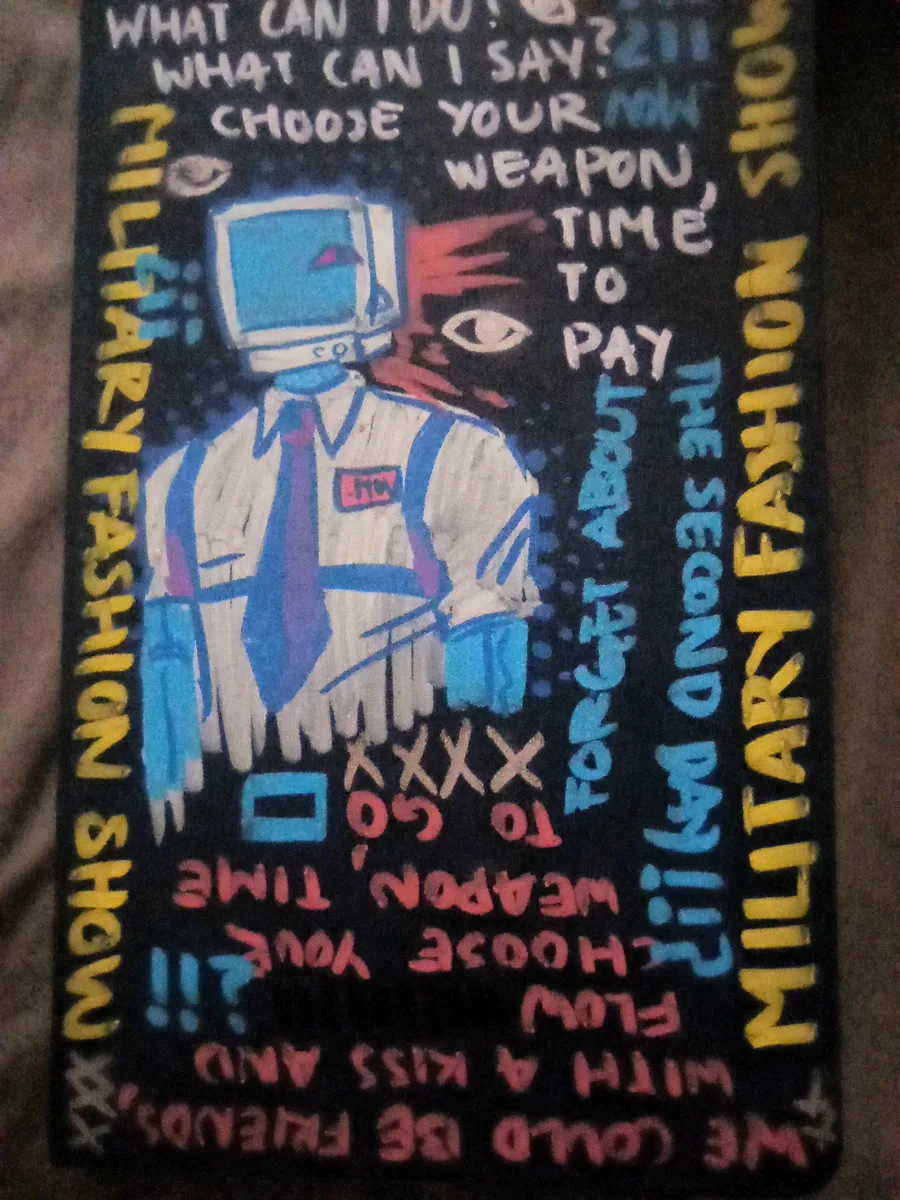 WHAT CAN I DO?
WHAT CAN I SAY?
CHOOSE YOUR
WEAPON,
TIME
TO
PAY
MILITARY FASHION SHOW
MILITARY FASHION SHOW
FORGET ABOUT
THE SECOND DAY!!?
?!!
XXXX
WE COULD BE FRIENDS,
WITH A KISS AND
FLOW
CHOOSE YOUR
WEAPON, TIME
TO GO
?!!
XXX